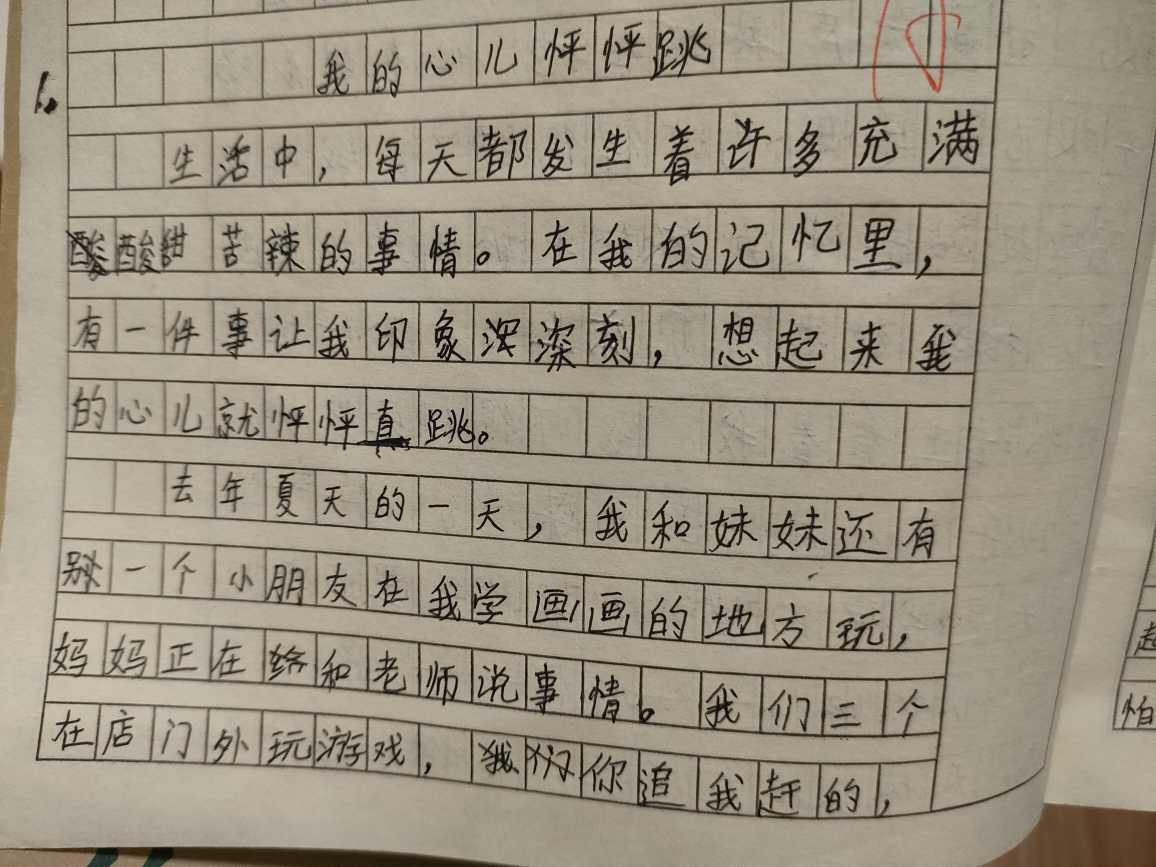 我的心儿怦怦跳
1、
生活中，每天都发生着许多充满
酸甜苦辣的事情。在我的记忆里，
有一件事让我印象深深刻，想起来我
的心儿就怦怦跳。
去年夏天的一天，我和妹妹还有
一个小朋友在我学画画的地方玩，
妈妈正在和老师说事情。我们三个
在店门外玩游戏，我们你追我赶的，
怕